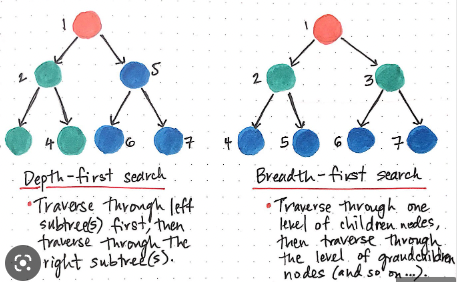 1
2
5
4
6
7
Depth-first search
• Traverse through left
subtree(s) first, then
traverse through the
right subtree(s).
1
2
3
4
5
6
7
Breadth-first search
• Traverse through one
level of children nodes,
then traverse through
the level of grandchildren
nodes (and so on...).